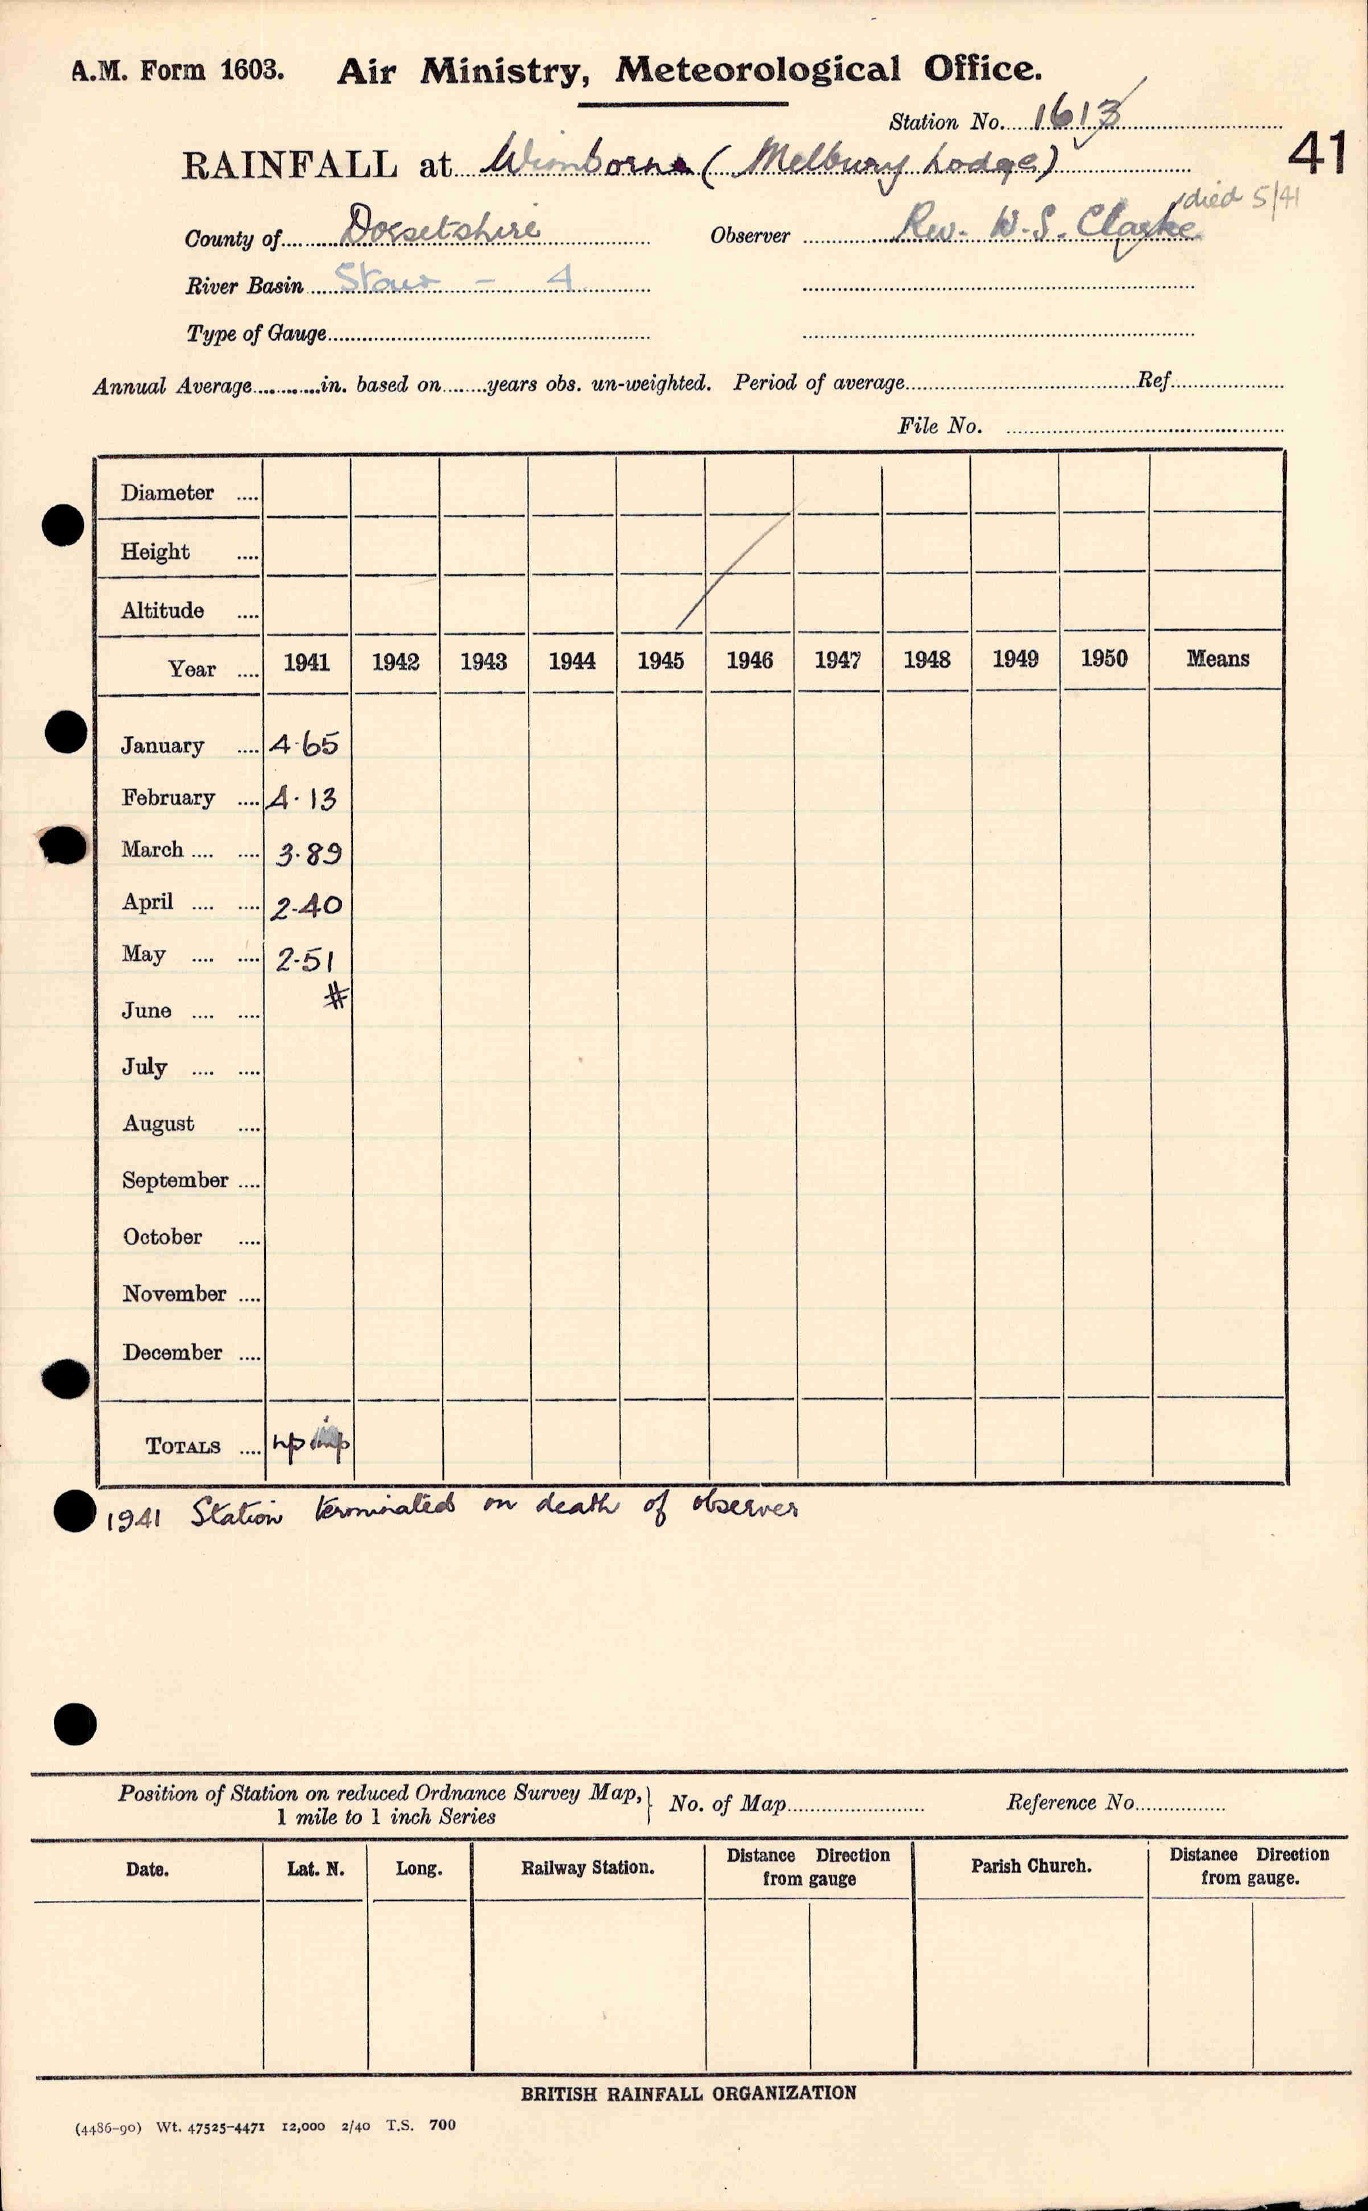 A.M. Form 1603. Air Ministry, Meteorological Office.
Station No. 1613
RAINFALL at Wimborne (Melbury Lodge) 41
died 5/41
County of Dorsetshire Observer Rev. W. S. Clarke
River Basin Stour - 4
Type of Gauge
Annual Average in. based on years obs. un-weighted. Period of average Ref.
File No.
Diameter
Height
Altitude
Year 1941 1942 1943 1944 1945 1946 1947 1948 1949 1950 Means
January 4.65
February 4.13
March 3.89
April 2.40
May 2.51
#
June
July
August
September
October
November
December
TOTALS np imp
1941 Station terminated on death of observer
Position of Station on reduced Ordnance Survey Map,} No. of Map Reference No.
1 mile to 1 inch Series
Date. Lat. N. Long. Railway Station. Distance Direction from gauge Parish Church. Distance Direction from gauge.
BRITISH RAINFALL ORGANIZATION
(4486-90) Wt. 47525-4471 12,000 2/40 T.S. 700